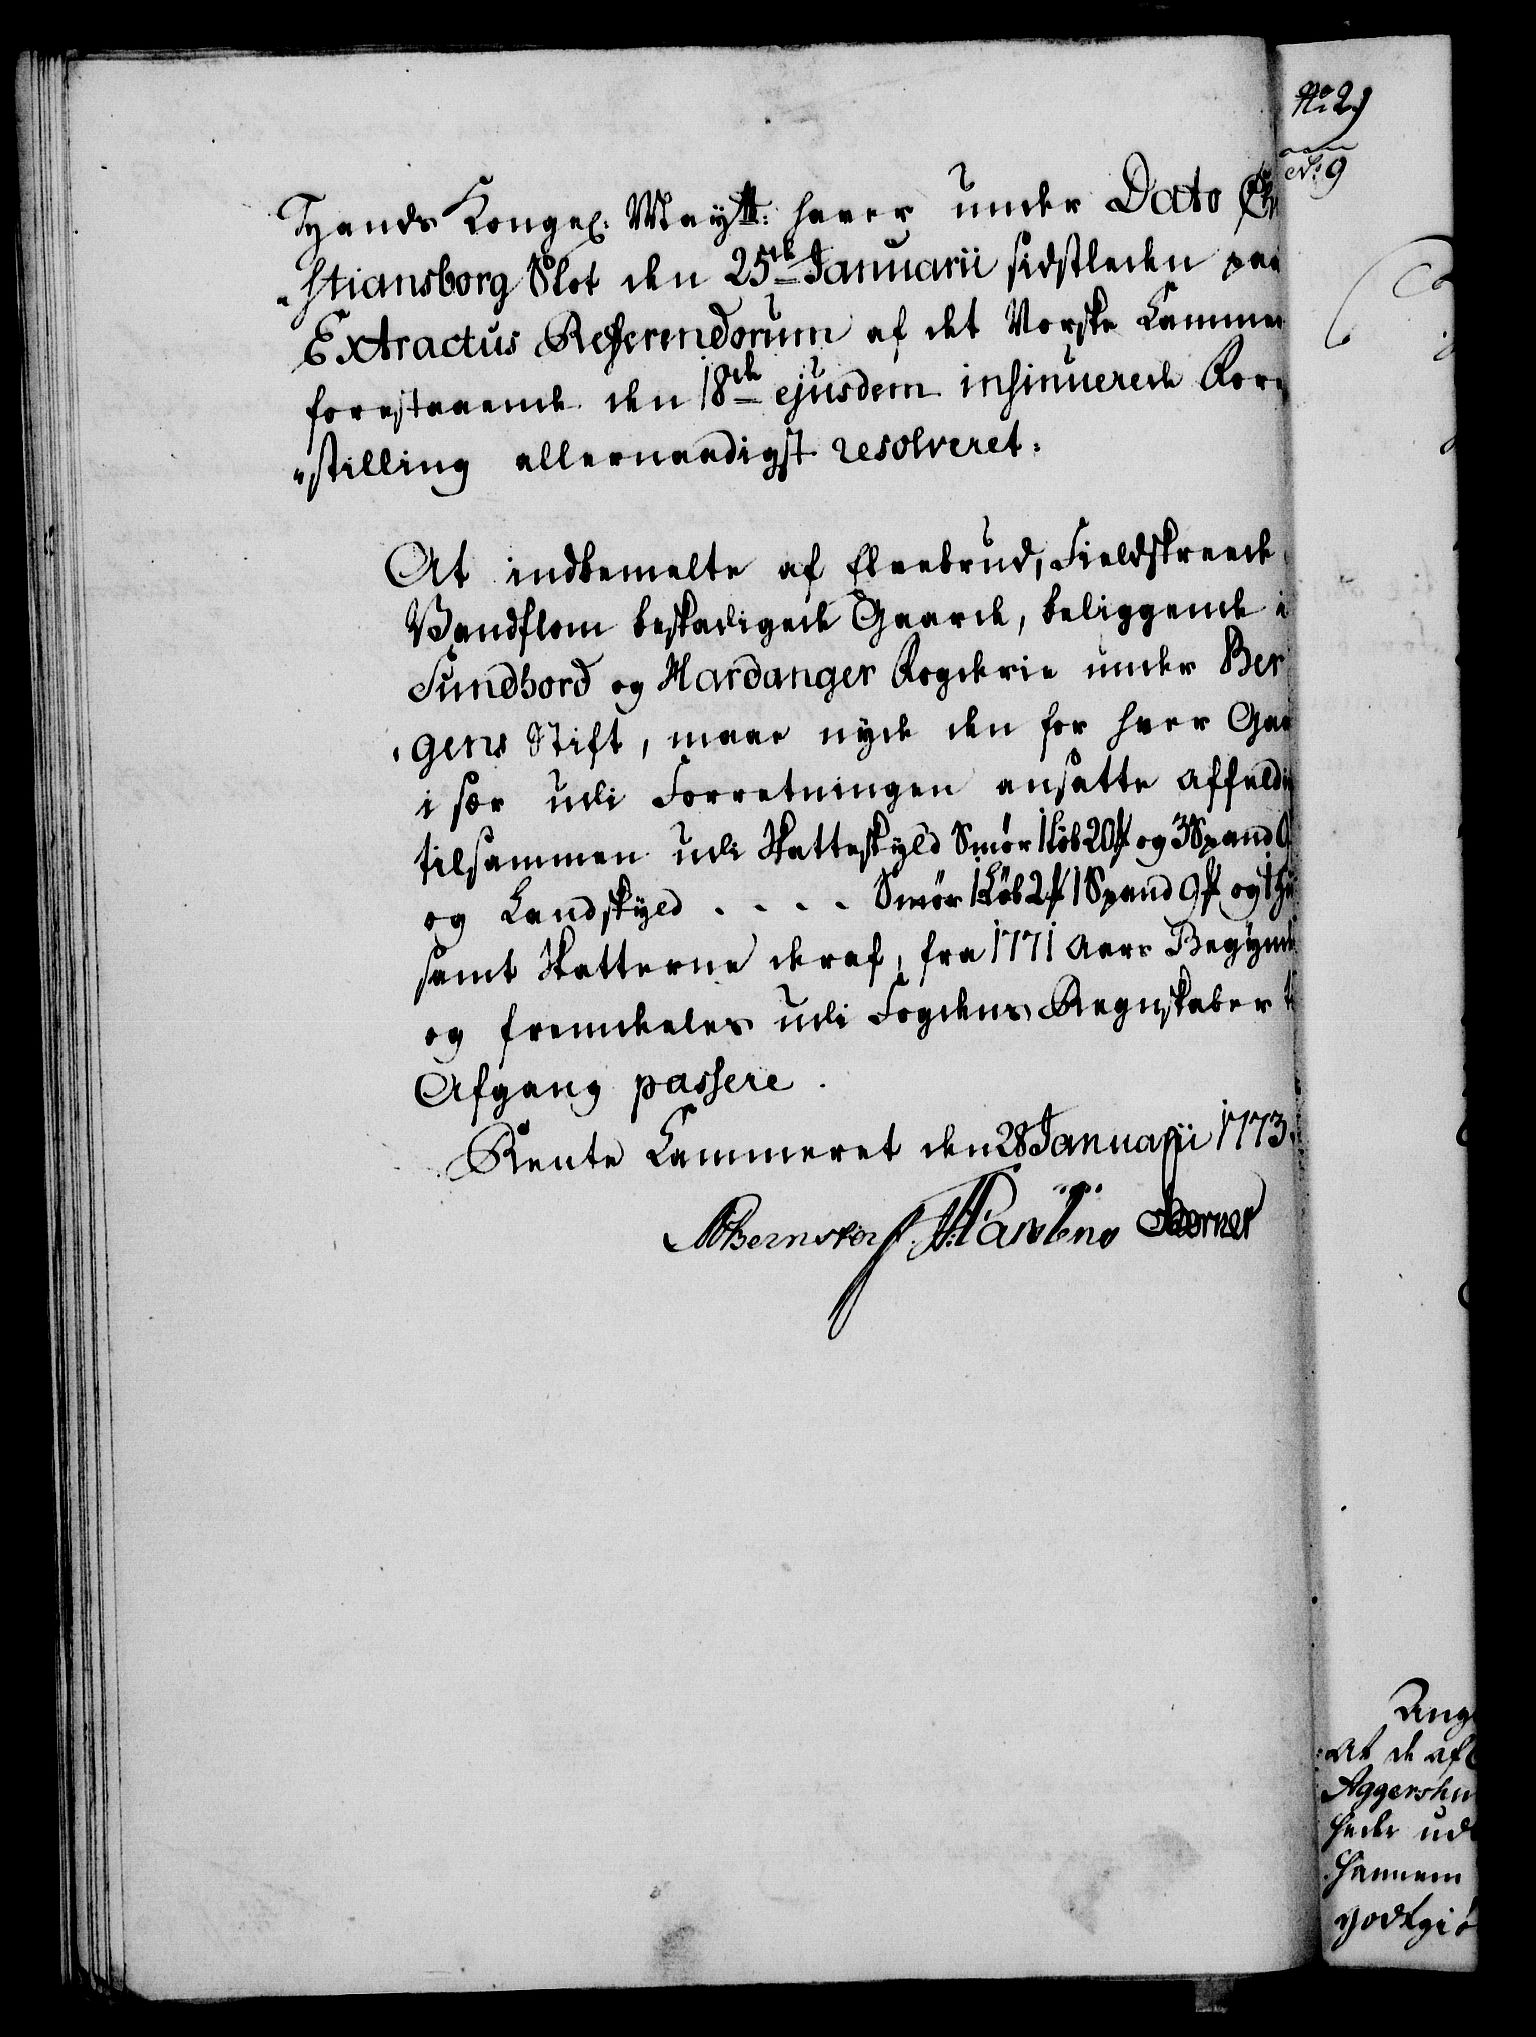 Hands Kongel: Maytt: haver under Dato Chri
"stiansborg Slot den 25de Januarii sidstleden paa
Extractus Referendorum af det Norske Kammer
forestaaende den 18de ejusdem insinuerede Fore
"stilling allernaadigst resolveret:
At indbemelte af Elvebrud, Fieldskreed
Vandflom beskadigede Gaarde, beliggende i
Sundhord og Hardanger Fogderie under Ber
"gens Stift, maae nyde den for hver Gaar
i sær udi Forretningen ansatte affeldi
tilsammen udi Skatteskyld Smør 1 Løb 20 ℔ og 3 Spand
og Landskyld . . . . Smør 1 Løb 2 ℔ 1 Spand 9 ℔ og 1 Hu
samt Skatterne deraf, fra 1771 Aars Begynde
og fremdeles udi Fogdens Regnskaber ti
Afgang passere.
Rente Kammeret den 28 Januarii 1773.
Bernstorff. Berner
No 2
No: 9
Ang
At de af
Aggershu
heder ud
hannem
godtgiø